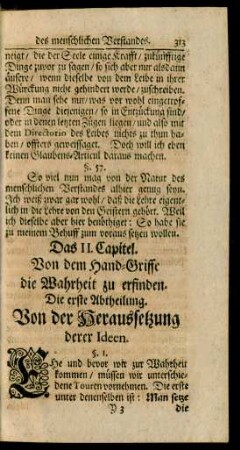 des menschlichen Verstandes. 313
neigt/ die der Seele einige Krafft/ zukünfftige
Dinge zuvor zu sagen/ so sich aber nur alsdann
äusere/ wenn dieselbe von dem Leibe in ihrer
Würckung nicht gehindert werde/ zuschreiben.
Denn man sehe nur/ was vor wohl eingetrof-
fene Dinge diejenigen/ so in Entzückung sind/
oder in denen letzten Zügen liegen/ und also mit
dem Directorio des Leibes nichts zu thun ha-
ben/ öffters geweissaget. Doch will ich eben
keinen Glaubens-Articul daraus machen.
§. 57.
So viel nun mag von der Natur des
menschlichen Verstandes allhier genug seyn.
Ich weiß zwar gar wohl/ daß die Lehre eigent-
lich in die Lehre von den Geistern gehört. Weil
ich dieselbe aber hier benöthiget: So habe sie
zu meinem Behuff zum voraus setzen wollen.
Das II. Capitel.
Von dem Hand-Griffe
die Wahrheit zu erfinden.
Die erste Abtheilung.
Von der Heraussetzung
derer Ideen.
§. 1.
Ehe und bevor wir zur Wahrheit
kommen/ müssen wir unterschie-
dene Touren vornehmen. Die erste
unter denenselben ist: Man setze
V 3 die